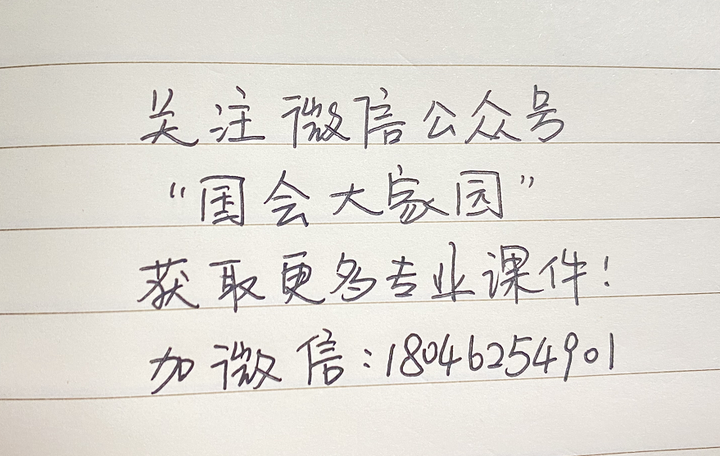 关注微信公众号
“国会大家园”
获取更多专业课件！
加微信：18046254901